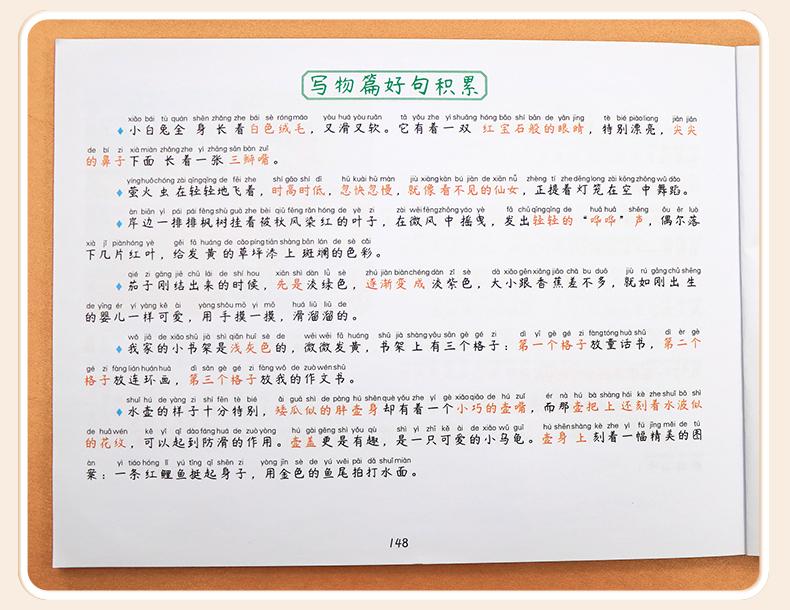 写物篇好句积累
xiǎo bái tù quán shēn zhǎng zhe bái sè róng máo yòu huá yòu ruǎn tā yǒu zhe yì shuāng hóng bǎo shí bān de yǎn jing tè bié piào liang jiān jiān
◆小白兔全身长着白色绒毛，又滑又软。它有着一双红宝石般的眼睛，特别漂亮，尖尖
de bí zi xià miàn zhǎng zhe yì zhāng sān bàn zuǐ
的鼻子下面长着一张三瓣嘴。
yíng huǒ chóng zài qīng qīng de fēi zhe shí gāo shí dī hū kuài hū màn jiù xiàng kàn bú jiàn de xiān nǚ zhèng tí zhe dēng long zài kōng zhōng wǔ dǎo
◆萤火虫在轻轻地飞着，时高时低，忽快忽慢，就像看不见的仙女，正提着灯笼在空中舞蹈。
àn biān yì pái pái fēng shù guà zhe bèi qiū fēng rǎn hóng de yè zi zài wēi fēng zhōng yáo yè fā chū qīng qīng de huā huā shēng ǒu ěr luò
◆岸边一排排枫树挂着被秋风染红的叶子，在微风中摇曳，发出轻轻的“哗哗”声，偶尔落
xià jǐ piàn hóng yè gěi fā huáng de cǎo píng tiān shàng bān lán de sè cǎi
下几片红叶，给发黄的草坪添上斑斓的色彩。
qié zi gāng jiē chū lái de shí hou xiān shì dàn lǜ sè zhú jiàn biàn chéng dàn zǐ sè dà xiǎo gēn xiāng jiāo chà bu duō jiù rú gāng chū shēng
◆茄子刚结出来的时候，先是淡绿色，逐渐变成淡紫色，大小跟香蕉差不多，就如刚出生
de yīng ér yí yàng kě ài yòng shǒu mō yi mō huá liū liū de
的婴儿一样可爱，用手摸一摸，滑溜溜的。
wǒ jiā de xiǎo shū jià shì qiǎn huī sè de wēi wēi fā huáng shū jià shàng yǒu sān gè gé zi dì yī gè gé zi fàng tóng huà shū dì èr gè
◆我家的小书架是浅灰色的，微微发黄，书架上有三个格子：第一个格子放童话书，第二个
gé zi fàng lián huán huà dì sān gè gé zi fàng wǒ de zuò wén shū
格子放连环画，第三个格子放我的作文书。
shuǐ hú de yàng zi shí fēn tè bié ǎi guā shì de pàng hú shēn què yǒu zhe yí gè xiǎo qiǎo de hú zuǐ ér nà hú bà shàng hái kè zhe shuǐ bō shì
◆水壶的样子十分特别，矮瓜似的胖壶身却有着一个小巧的壶嘴，而那壶把上还刻着水波似
de huā wén kě yǐ qǐ dào fáng huá de zuò yòng hú gài gèng shì yǒu qù shì yì zhī kě ài de xiǎo wū guī hú shēn shàng kè zhe yì fú jīng měi de tú
的花纹，可以起到防滑的作用。壶盖更是有趣，是一只可爱的小乌龟。壶身上刻着一幅精美的图
àn yì tiáo hóng lǐ yú tǐng qǐ shēn zi yòng jīn sè de yú wěi pāi dǎ shuǐ miàn
案：一条红鲤鱼挺起身子，用金色的鱼尾拍打水面。
148